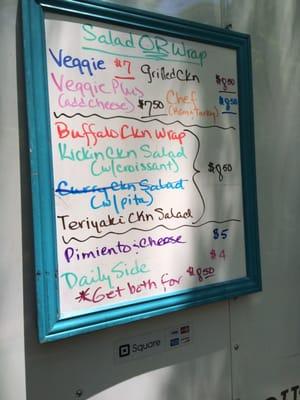 Salad OR Wrap
Veggie $7 grilled Ckn $8.50
Veggie Plus
(add cheese) $7.50 Chef
(Ham & Turkey) $8.50
Buffalo Ckn Wrap
Kickin Ckn Salad
(w/croissant)
$8.50
Curry Ckn Salad
(w/pita)
Teriyaki Ckn Salad
Pimiento Cheese $5
Daily Side $4
*Get both for $8.50
Square